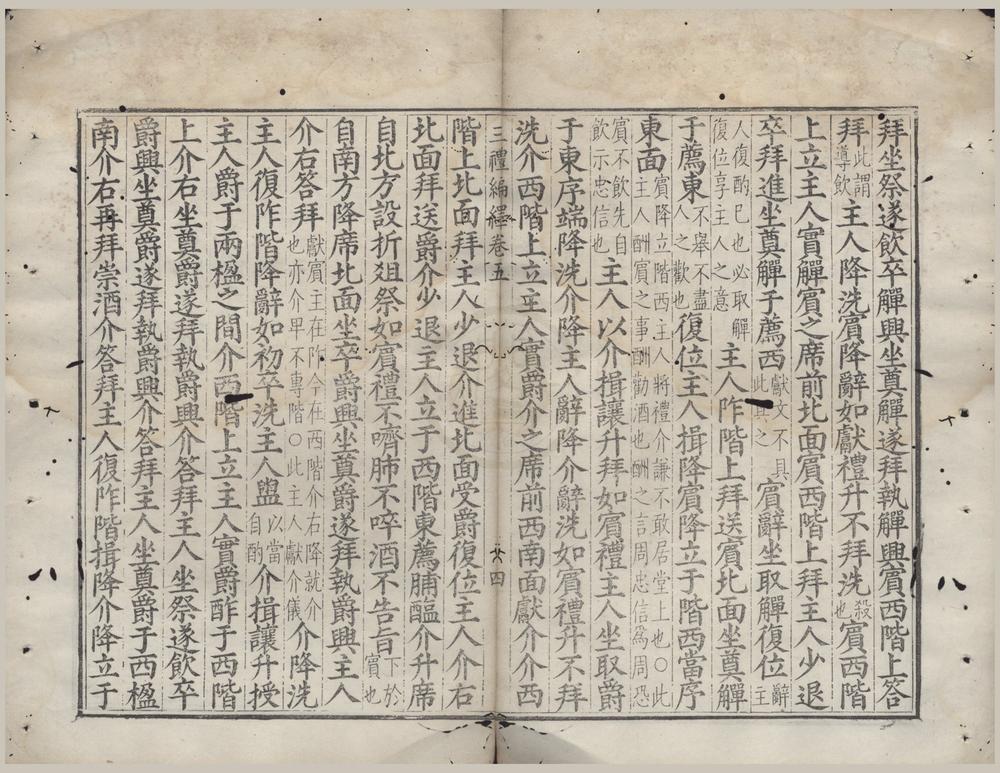 拜坐祭遂飲卒觶興坐奠觶遂拜執觶興賓西階上答
拜此謂導飲主人降洗賓降辭如獻禮升不拜洗殺也賓西階
上立主人實觶賓之席前北面賓西階上拜主人少退
卒拜進坐奠觶于薦西獻文不具此直之賓辭坐取觶復位辭主
人復酌已也必取觶復位享主人之意主人阼階上拜送賓北面坐奠觶
于薦東不舉不盡人之歡也復位主人揖降賓降立于階西當序
東面賓降立階西主人將禮介謙不敢居堂上也○此主人酬賓之事酬勸酒也酬之言周忠信為周恐
賓不飲先自飲示忠信也主人以介揖讓升拜如賓禮主人坐取爵
于東序端降洗介降主人辭降介辭洗如賓禮升不拜
洗介西階上立主人實爵介之席前西南面獻介介西
三禮編繹卷五
四
階上北面拜主人少退介進北面受爵復位主人介右
北面拜送爵介少退主人立于西階東薦脯醢介升席
自北方設折俎祭如賓禮不嚌肺不啐酒不告旨下於賓也
自南方降席北面坐卒爵興坐奠爵遂拜執爵興主人
介右答拜獻賓主在阼今在西階介右降就介也亦介卑不專階○此主人獻介儀介降洗
主人復阼階降辭如初卒洗主人盥以當自酌介揖讓升授
主人爵于兩楹之間介西階上立主人實爵酢于西階
上介右坐奠爵遂拜執爵興介答拜主人坐祭遂飲卒
爵興坐奠爵遂拜執爵興介答拜主人坐奠爵于西楹
南介右再拜崇酒介答拜主人復阼階揖降介降立于